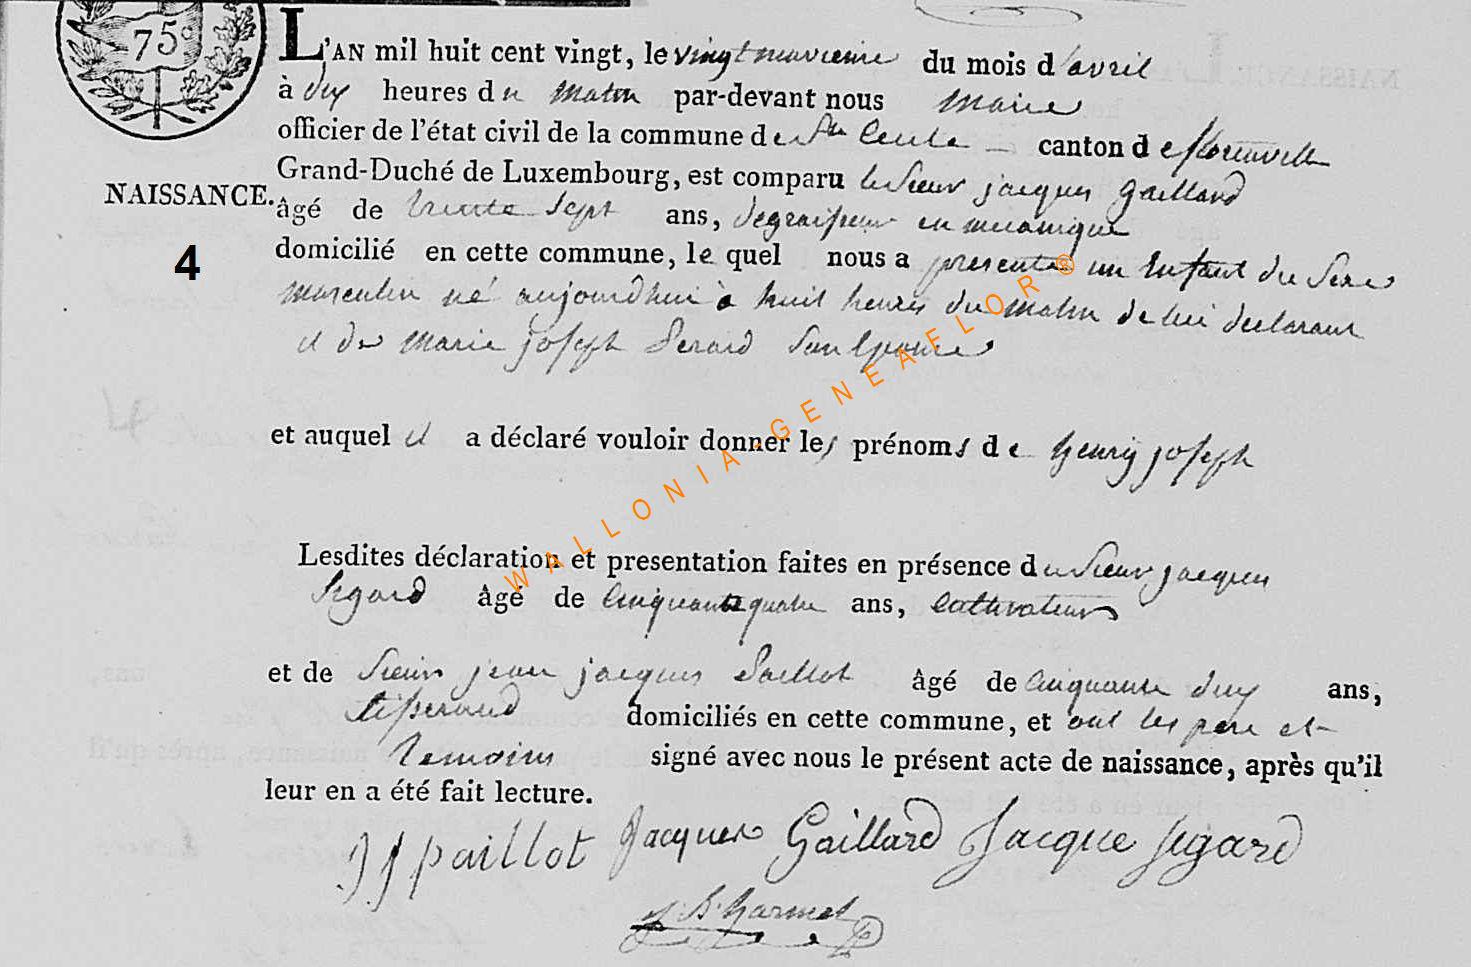 75c
L'AN mil huit cent vingt, le vingt neuvieme du mois d'avril
à dix heures du matin par-devant nous Maire
officier de l'état civil de la commune de Ste Cecile canton de florenville
Grand-Duché de Luxembourg, est comparu le Sieur jacques Gaillard
NAISSANCE.
âgé de trente Sept ans, degraisseur en mecanique
4
domicilié en cette commune, le quel nous a presenté un Enfant du Sexe
masculin né aujourdhui à huit heures du matin de lui declarant
et de Marie joseph Son Epouse
et auquel il a déclaré vouloir donner les prénoms de henry joseph
Lesdites déclaration et presentation faites en présence du Sieur jacques
Sigard âgé de Cinquante quatre ans, Cultivateur
et de Sieur jean jacques Paillot âgé de Cinquante deux ans,
tisserand domiciliés en cette commune, et ont les pere et
temoins signé avec nous le présent acte de naissance, après qu'il
leur en a été fait lecture.
JJ paillot Jacques Gaillard Jacque Sigard
WALLONIA-GENEAFLOR®